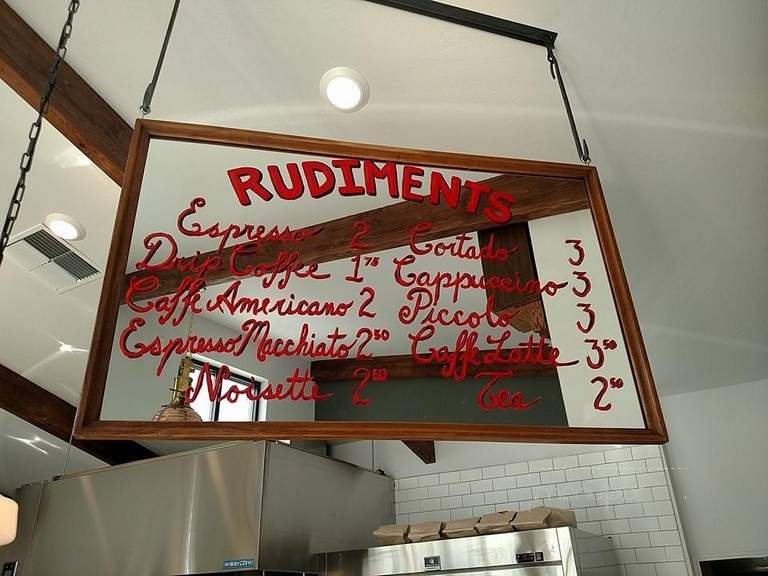 RUDIMENTS
Espresso 2
Drip Coffee 1 75
Caffe Americano 2
Espresso Macchiato 2 50
Noisette 2 50
Cortado 3
Cappuccino 3
Piccolo 3
Caffe Latte 3 50
Tea 2 50